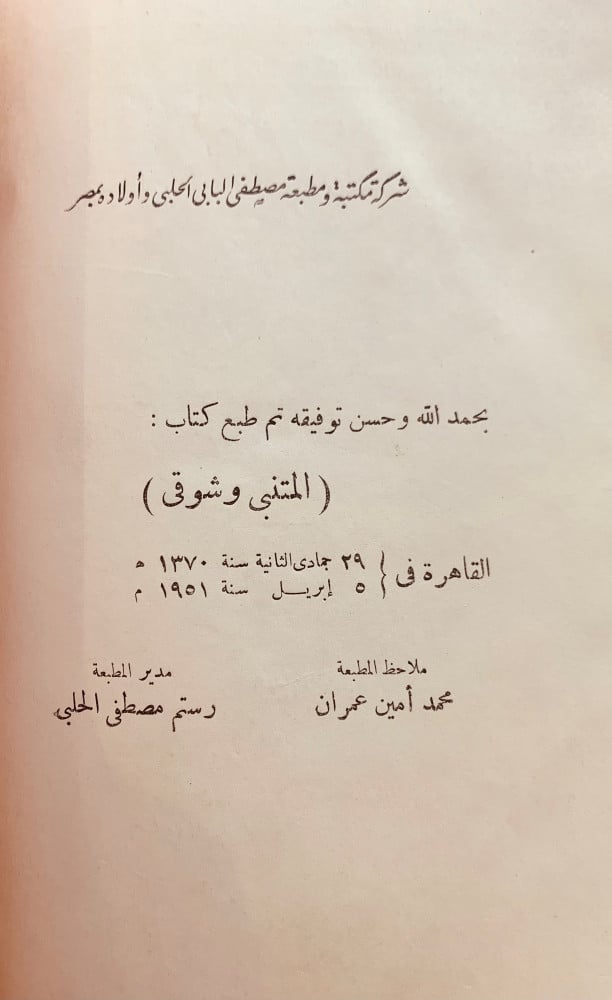 شركة مكتبة ومطبعة مصطفى البابى الحلبى وأولاده بمصر
بحمد الله وحسن توفيقه تم طبع كتاب :
( المتنبى وشوقى )
القاهرة فى { ٢٩ جمادى الثانية سنة ١٣٧٠ ه
٥ إبريل سنة ١٩٥١ م
ملاحظ المطبعة مدير المطبعة
محمد أمين عمران رستم مصطفى الحلبى